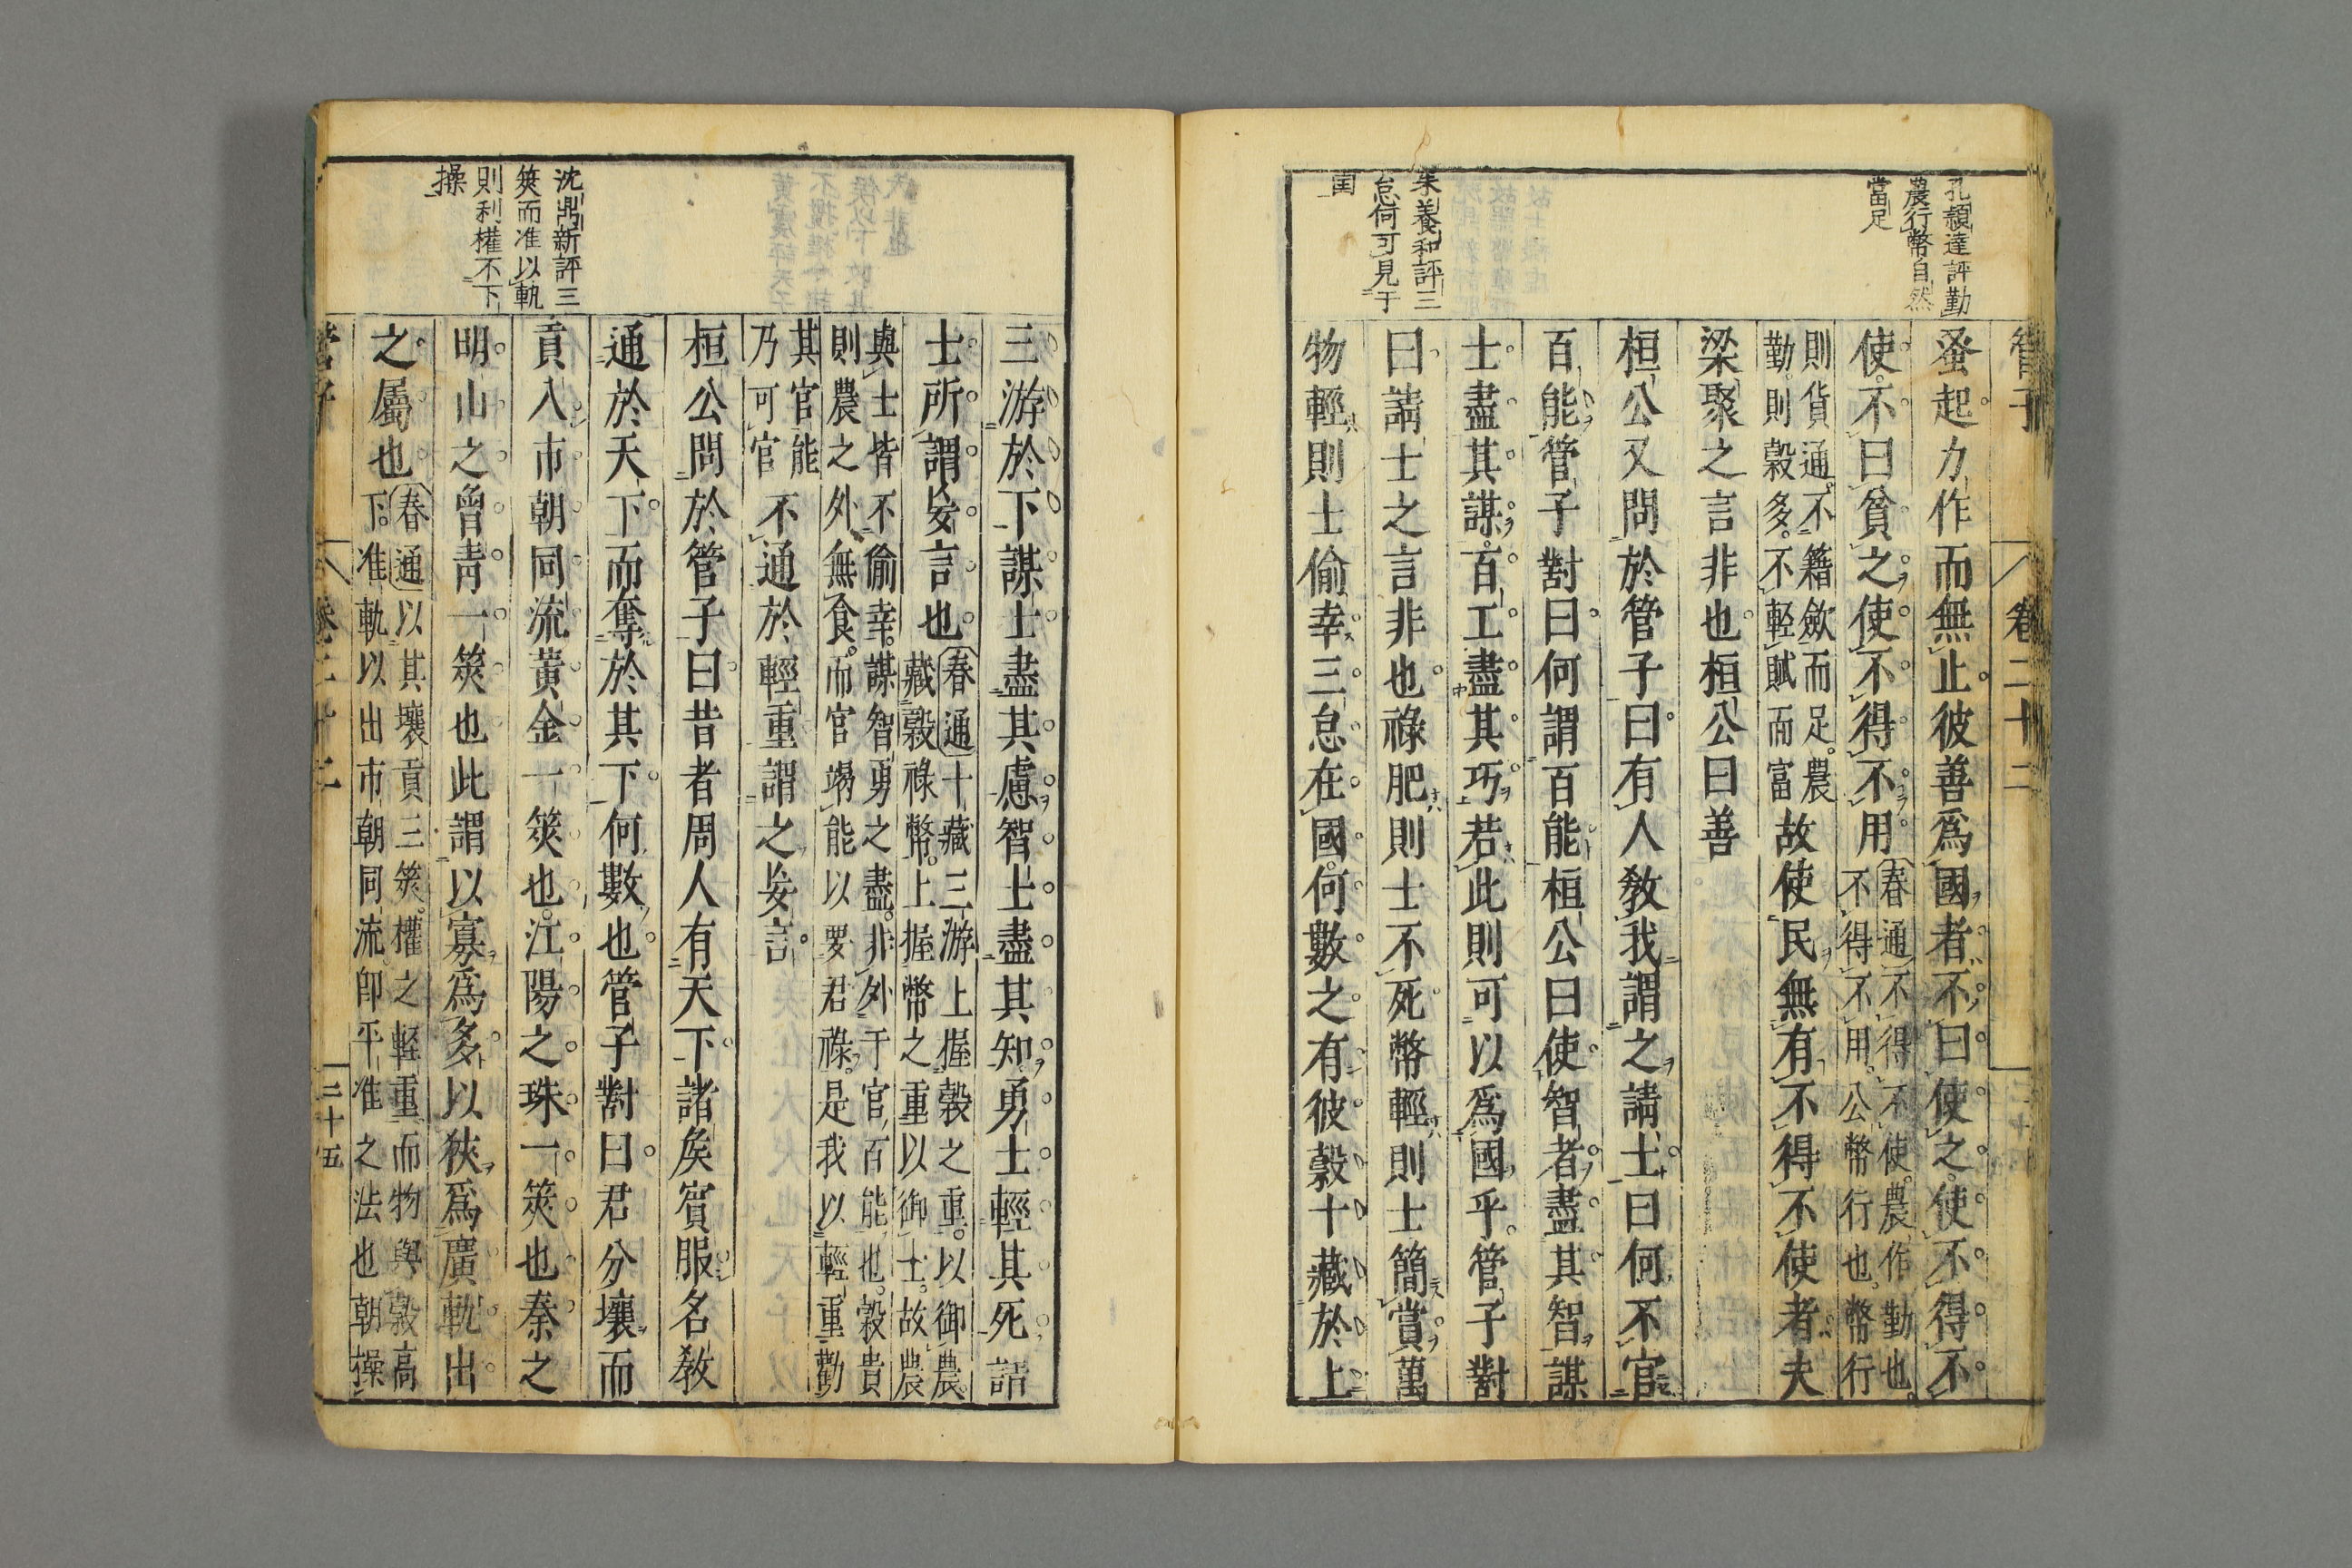 管子
卷二十二
孔頴達評勤
農行幣自然
當足
蚤起力作而無止彼善爲國者不曰使之使不得不
使不曰貧之使不得不用
春通不得不使農作勤也
不得不用公幣行也幣行
則貨通不籍歛而足農
勤則穀多不輕賦而富
故使民無有不得不使者夫
梁聚之言非也桓公曰善
桓公又問於管子曰有人教我謂之請士曰何不官
百能管子對曰何謂百能桓公曰使智者盡其智謀
士盡其謀百工盡其巧若此則可以爲國乎管子對
朱養和評三
怠何可見于
國
曰請士之言非也祿肥則士不死幣輕則士簡賞萬
物輕則士偷幸三怠在國何數之有彼穀十藏於上
三游於下謀士盡其慮智士盡其知勇士輕其死請
士所謂妄言也
春通十藏三游上握穀之重以御農
藏穀祿幣上握幣之重以御士故農
與士皆不偷幸謀智勇之盡非外于官百能也穀貴
則農之外無食而官竭能以要君祿是我以輕重勸
其官能
乃可官
不通於輕重謂之妄言
桓公問於管子曰昔者周人有天下諸矦賓服名教
通於天下而奪於其下何數也管子對曰君分壤而
沈鼎新評三
筴而准以軌
則利權不下
操
貢入市朝同流黃金一筴也江陽之珠一筴也秦之
明山之曾靑一筴也此謂以寡爲多以狹爲廣軌出
之屬也
春通以其壤貢三筴權之輕重而物與穀高
下准軌以出市朝同流卽平准之法也朝操
管子
卷二十二
三十五